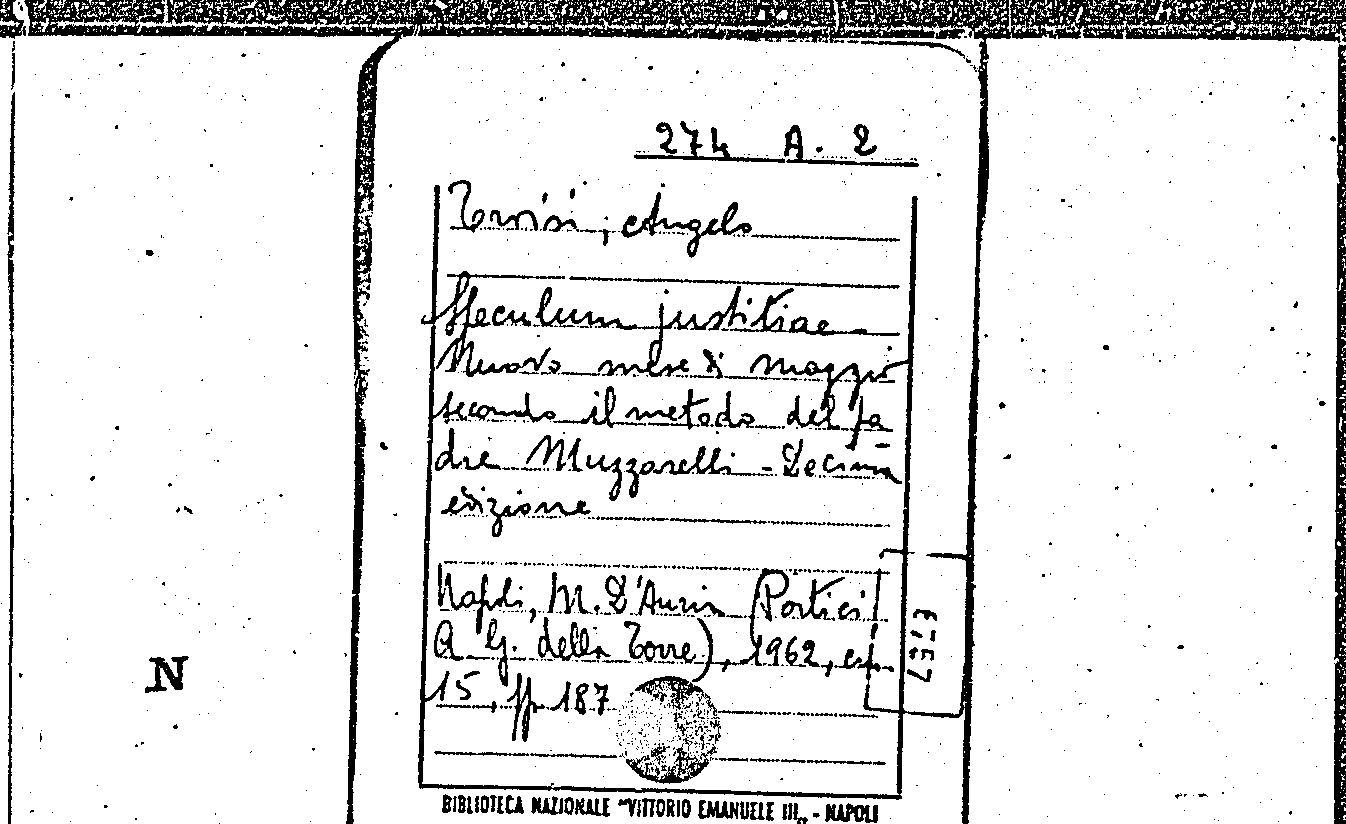 274 A. 2
Trisisi, Angelo
Speculum justitiae -
Nuovo mese di maggio
secondo il metodo del pa-
dre Muzzarelli - Decima
edizione
Napoli, M. D'Auria (Portici
A. G. della Torre), 1962,
15, pp. 187
N
BIBLIOTECA NAZIONALE "VITTORIO EMANUELE III„ - NAPOLI